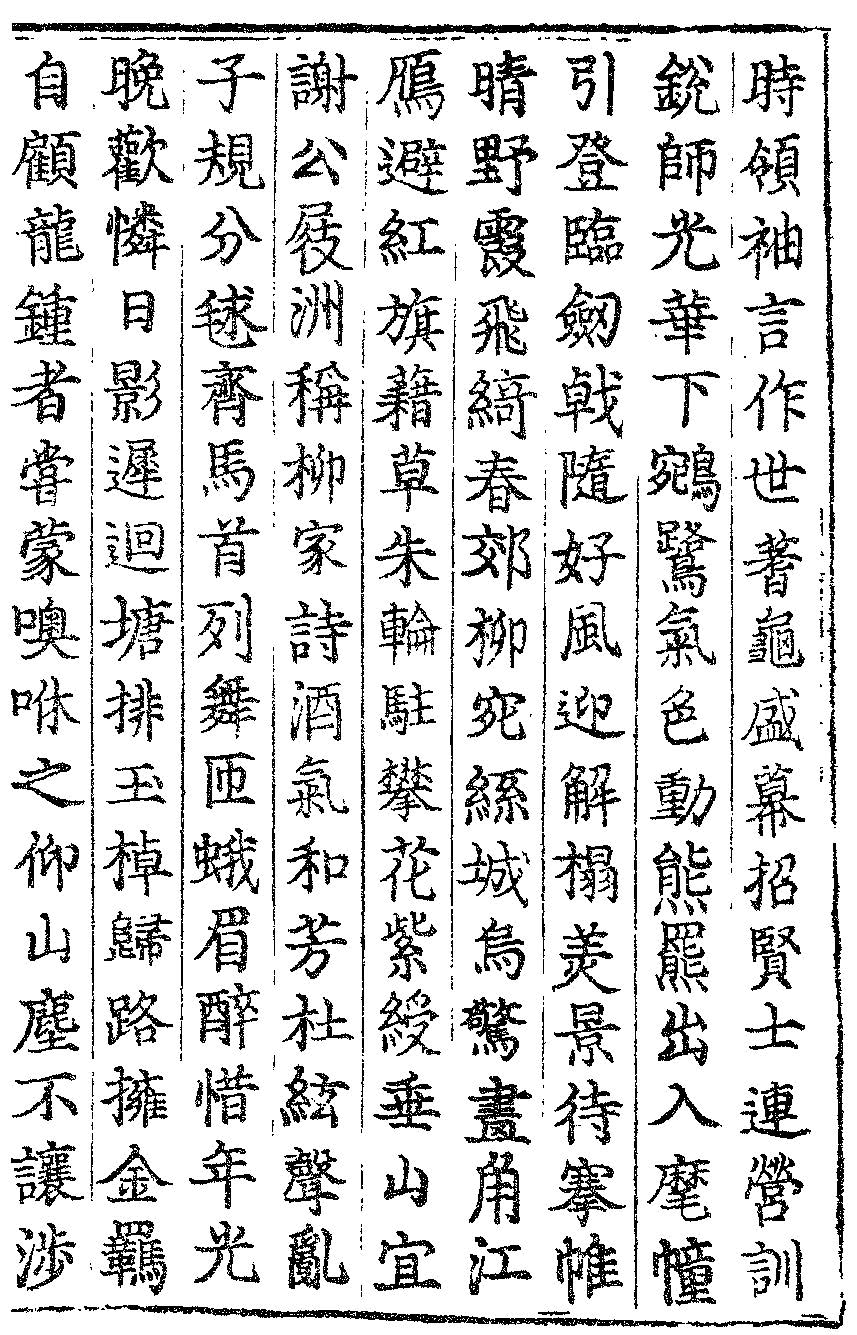 時領袖言作世蓍龜盛幕招賢士連營訓
銳師光華下鵷鷺氣色動熊羆出入麾幢
引登臨劒戟隨好風迎解榻羙景待搴帷
晴野霞飛綺春郊柳宛絲城烏驚畫角江
鴈避紅旗藉草朱輪駐攀花紫綬垂山宜
謝公屐洲稱柳家詩酒氣和芳杜絃聲亂
子規分毬齊馬首列舞匝蛾眉醉惜年光
晚歡憐日影遲迴塘排玉棹歸路擁金羈
自顧龍鍾者嘗蒙噢咻之仰山塵不讓涉